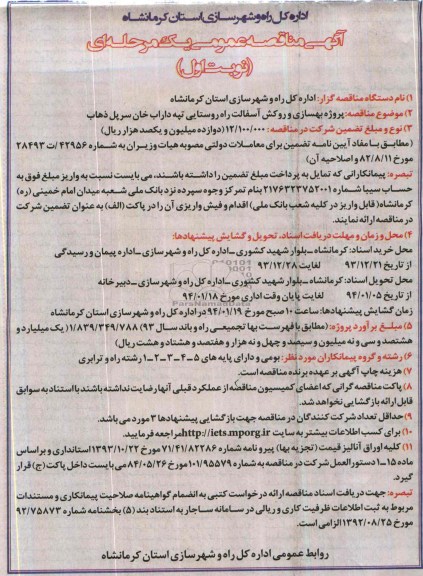 اداره کل راه و شهرسازی استان کرمانشاه
آگهی مناقصه عمومی یک مرحله‌ای
(نوبت اول)
۱) نام دستگاه مناقصه گزار: اداره کل راه و شهرسازی استان کرمانشاه
۲) موضوع مناقصه: پروژه بهسازی و روکش آسفالت راه روستایی تپه داراب خان سرپل ذهاب
۳) نوع و مبلغ تضمین شرکت در مناقصه: ۱۲/۱۰۰/۰۰۰ (دوازده میلیون و یکصد هزار ریال)
(مطابق با مفاد آیین نامه تضمین برای معاملات دولتی مصوبه هیات وزیران به شماره ۴۲۹۵۶/ت ۲۸۴۹۳
مورخ ۸۲/۸/۱۱ و اصلاحیه آن)
تبصره: پیمانکارانی که تمایل به پرداخت مبلغ تضمین را داشته باشند، می بایست نسبت به واریز مبلغ فوق به
حساب سیبا شماره ۲۱۷۶۴۲۳۷۵۲۰۰۱ بنام تمرکز وجوه سپرده نزد بانک ملی شعبه میدان امام خمینی (ره)
کرمانشاه (قابل واریز در کلیه شعب بانک ملی) اقدام و فیش واریزی آن را در پاکت (الف) به عنوان تضمین شرکت
در مناقصه ارائه نمایند.
۴) محل و زمان و مهلت دریافت اسناد، تحویل و گشایش پیشنهادها:
محل خرید اسناد: کرمانشاه_بلوار شهید کشوری_اداره کل راه و شهرسازی_اداره پیمان و رسیدگی
از تاریخ ۹۳/۱۲/۲۱ لغایت ۹۳/۱۲/۲۸
محل تحویل اسناد: کرمانشاه_بلوار شهید کشوری_اداره کل راه و شهرسازی_دبیرخانه
از تاریخ ۹۴/۰۱/۰۵ لغایت پایان وقت اداری مورخ ۹۴/۰۱/۱۸
زمان گشایش پیشنهادها: ساعت ۱۰ صبح مورخ ۹۴/۰۱/۱۹ در اداره کل راه و شهرسازی استان کرمانشاه
۵) مبلغ برآورد پروژه: (مطابق با فهرست بها تجمیعی راه و باند سال ۹۳) ۱/۸۳۹/۳۴۹/۷۸۸ (یک میلیارد و
هشتصد و سی و نه میلیون و سیصد و چهل و نه هزار و هفتصد و هشتاد و هشت ریال)
۶) رشته و گروه پیمانکاران مورد نظر: بومی و دارای پایه های ۵_۴_۳_۲_۱ رشته راه و ترابری
۷) هزینه چاپ آگهی بر عهده برنده مناقصه است.
۸) پاکت مناقصه گرانی که اعضای کمیسیون مناقصه از عملکرد قبلی آنها رضایت نداشته باشند با استناد به سوابق
قابل ارائه بازگشایی نخواهد شد.
۹) حداقل تعداد شرکت کنندگان در مناقصه جهت بازگشایی پیشنهادها ۳ مورد می باشد.
۱۰) برای کسب اطلاعات بیشتر به سایت http://iets.mporg.ir مراجعه فرمایید.
۱۱) کلیه اوراق آنالیز قیمت (تجزیه بها) پیرو نامه شماره ۷۱/۴۱/۸۲۲۸۶ مورخ ۱۳۹۳/۱۰/۲۲ استانداری و بر اساس
ماده ۱۵_۱ دستورالعمل شرکت در مناقصه به شماره ۱۰۱/۹۵۵۷۹ مورخ ۸۴/۰۵/۲۶ می بایست داخل پاکت (ج) قرار
گیرد.
تبصره: جهت دریافت اسناد مناقصه ارائه درخواست کتبی به انضمام گواهینامه صلاحیت پیمانکاری و مستندات
مربوط به ثبت اطلاعات ظرفیت کاری و ریالی در سامانه ساجار به استناد بند (۵) بخشنامه شماره ۹۲/۷۵۸۷۳
مورخ ۱۳۹۲/۰۸/۲۵ الزامی است.
روابط عمومی اداره کل راه و شهرسازی استان کرمانشاه